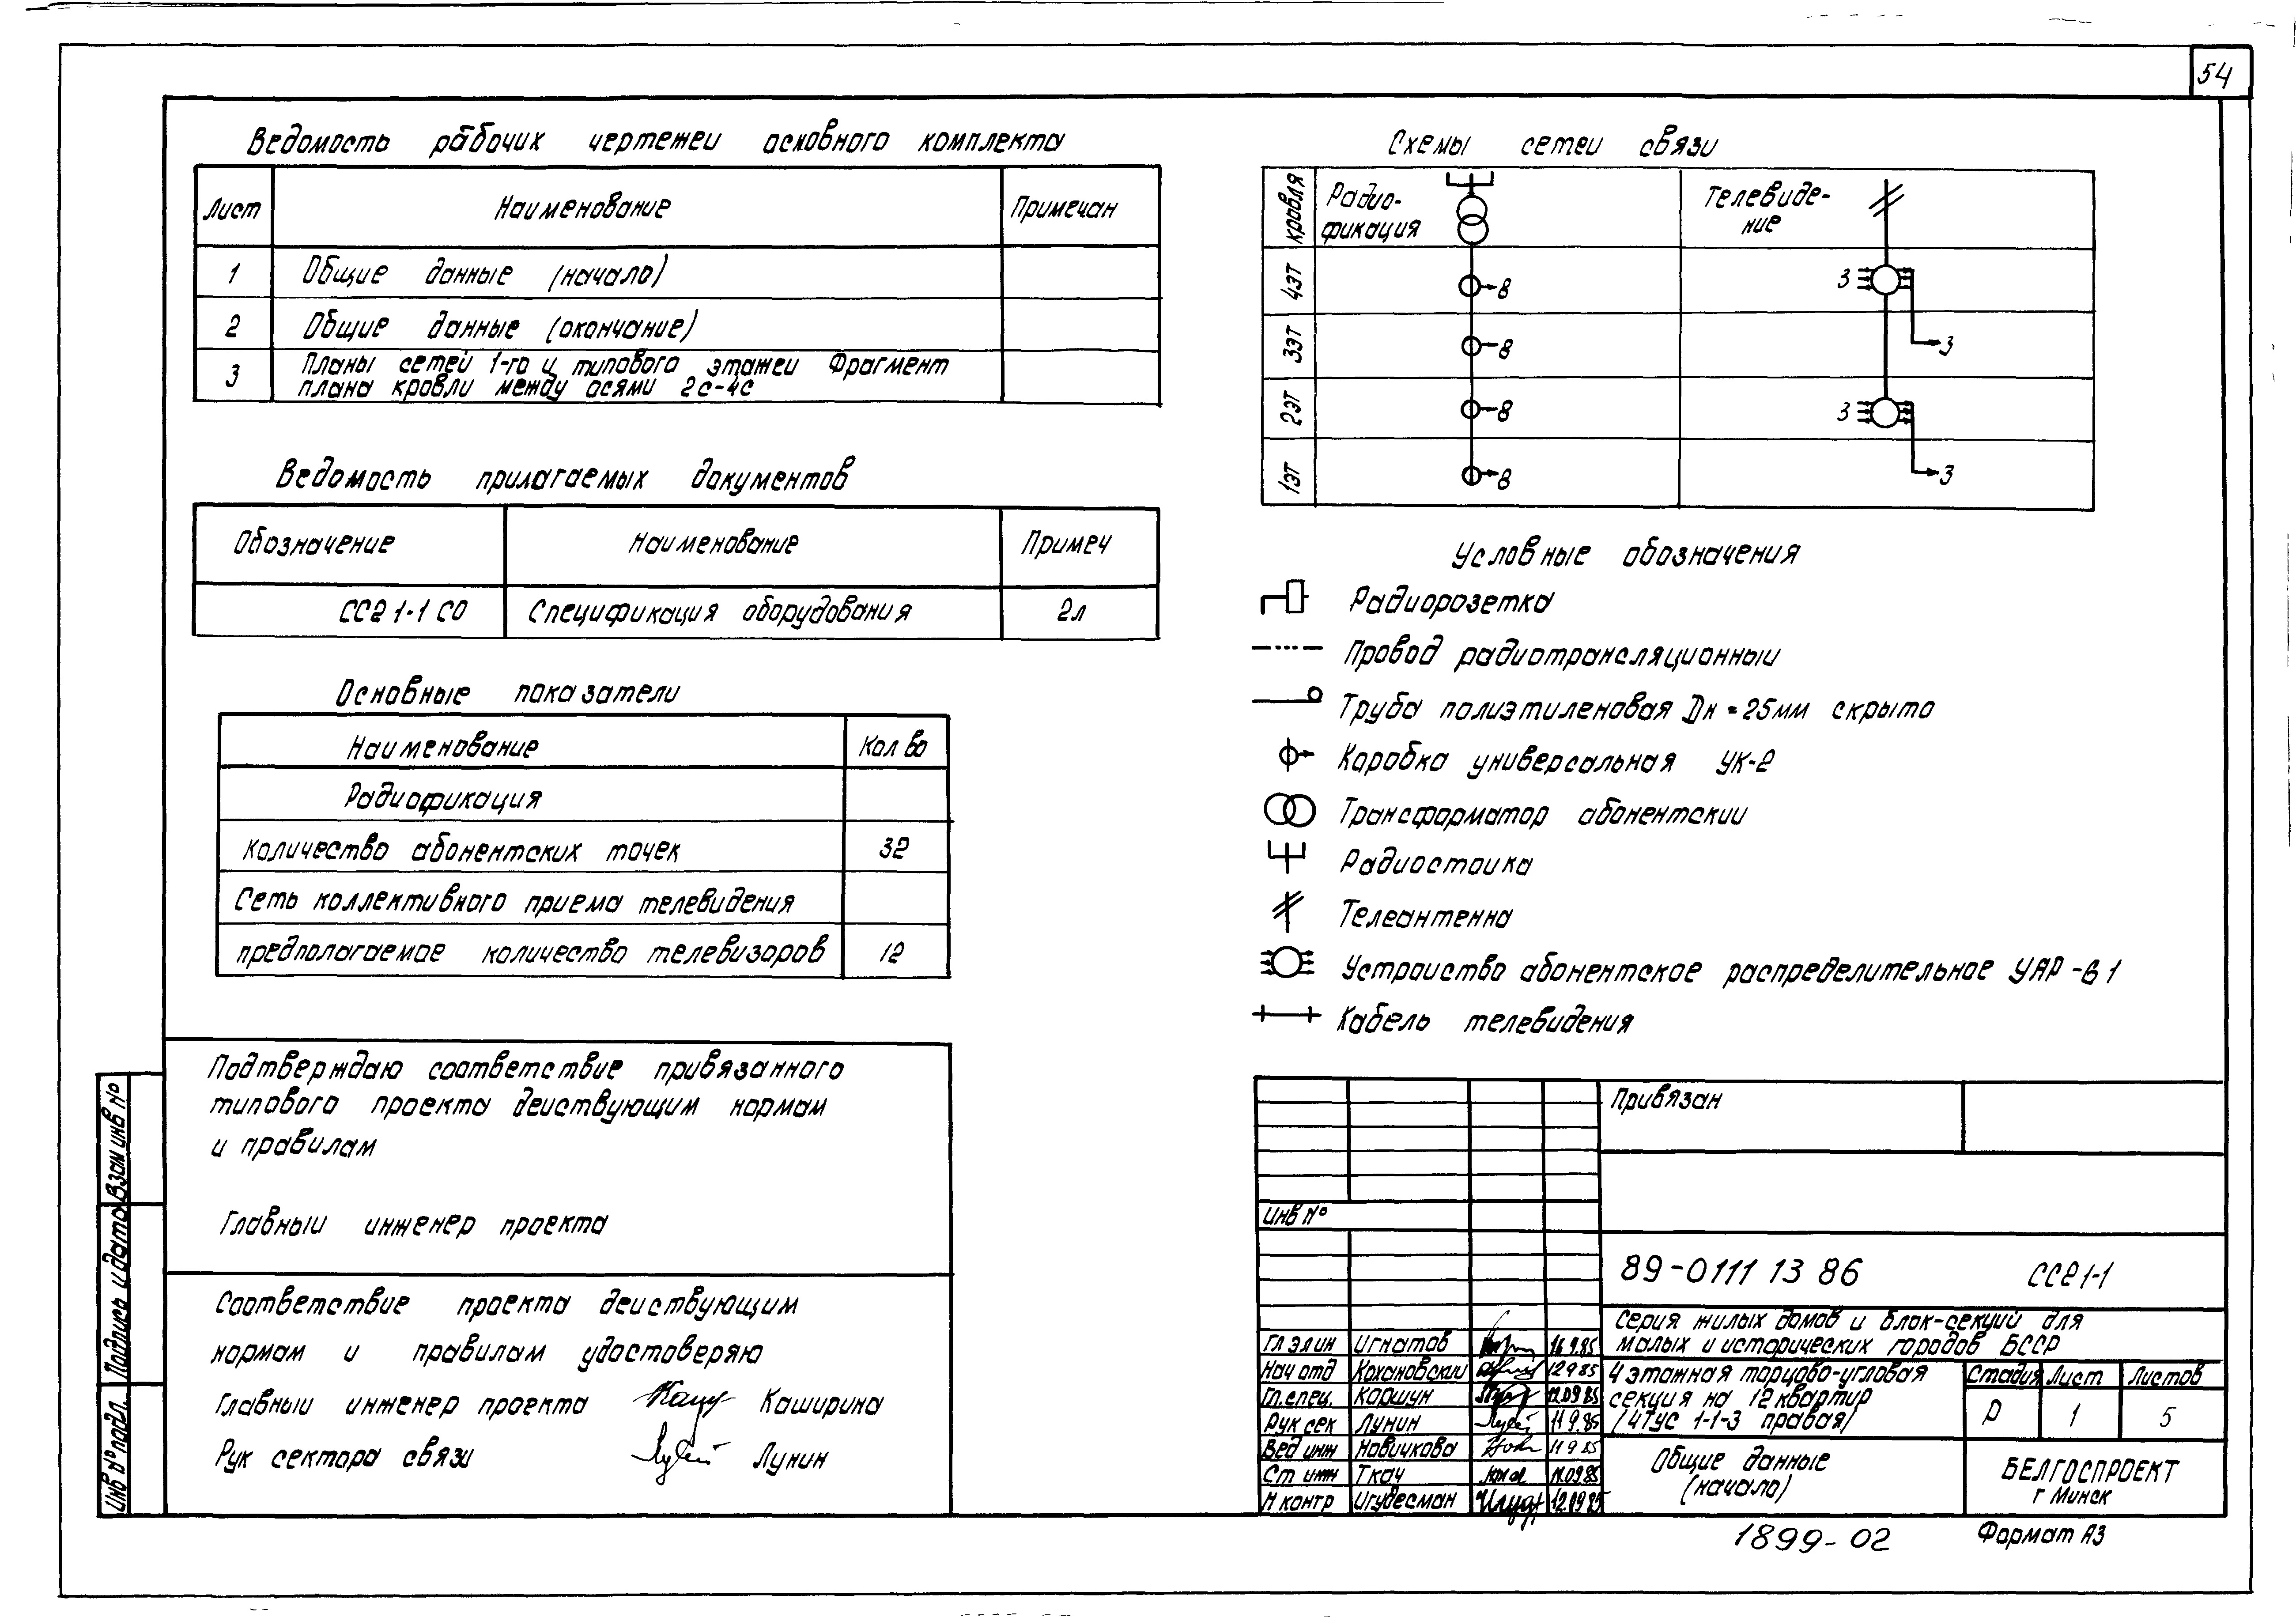 54
Ведомость рабочих чертежеи основного комплекта
Лист Наименование Примечан
1 Общие данные (начало)
2 Общие данные (окончание)
3 Планы сетей 1-го и типового этажеи Фрагмент
плана кровли между осями 2с-4с
Ведомость прилагаемых документов
Обозначение Наименование Примеч
СС2 1-1 СО Спецификация оборудования 2л
Основные показатели
Наименование Кол во
Радиофикация
Количество абонентских точек 32
Сеть коллективного приема телевидения
предполагаемое количество телевизоров 12
Подтверждаю соответствие привязанного
типового проекта деиствующим нормам
и правилам
Главныи инженер проекта
Соответствие проекта деиствующим
нормам и правилам удостоверяю
Главныи инженер проекта Каширина
Рук сектора связи Лунин
Взам инв №
Подпись и дата
Инв № подл.
Схемы сетеи связи
кровля Радио-
фикация
Телевиде-
ние
4эт 8 3
3эт 8 3
2эт 8 3
1эт 8 3
Условные обозначения
Радиорозетка
Провод радиотрансляционныи
Труба полиэтиленовая Dн = 25мм скрыто
Коробка универсальная УК-2
Трансформатор абонентскии
Радиостоика
Телеантенна
Устроиство абонентское распределительное УАР-6 1
Кабель телевидения
Привязан
Инв №
89-0111 13 86 СС2 1-1
Серия жилых домов и блок-секций для
малых и исторических городов БССР
Гл элин Игнатов 16.9.85
Нач отд Кохановскии 12 9 85
Гл.спец. Каршун 12.09.85
Рук сек Лунин 11 9.85
Вед инж Новичкова 11 9 85
Ст инж Ткач 11.09.85
Н контр Игудесман 12.09.85
4 этажная торцово-угловая
секция на 12 квартир
/4ТУС 1-1-3 правая/
Стадия Лист Листов
Р 1 5
Общие данные
(начало)
БЕЛГОСПРОЕКТ
г Минск
1899-02
Формат А3